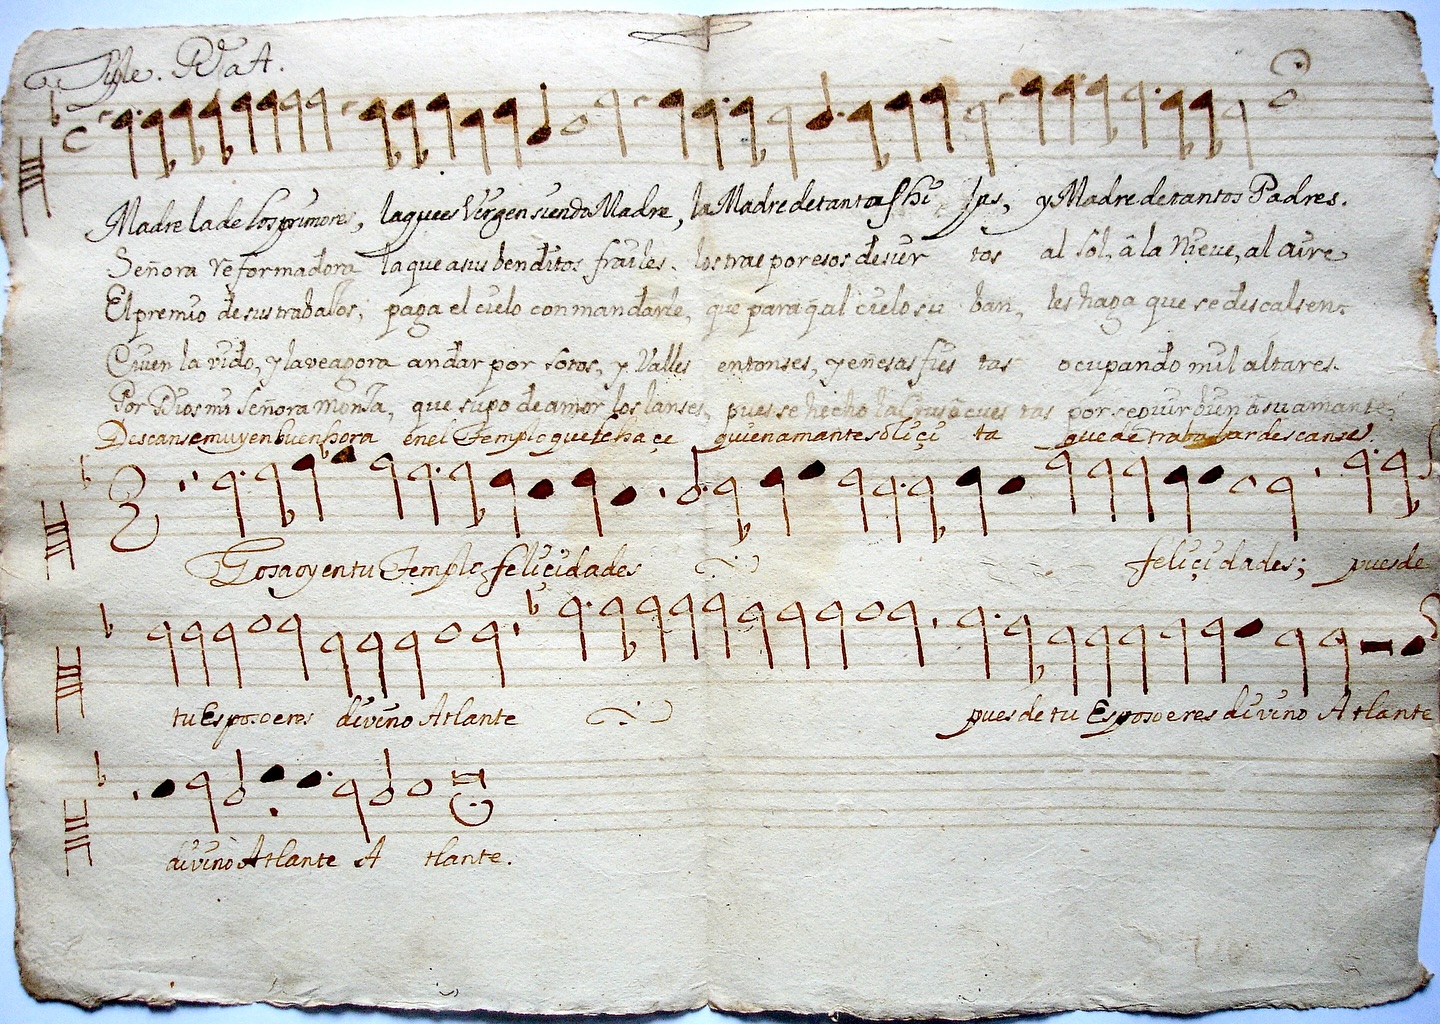 Tiple. A
Madre la de los primores, la que es Virgen siendo Madre, la Madre de tantas hi jas, y Madre de tantos Padres.
Señora reformadora la que a sus benditos frailes. los trae por esos desier tos al sol, â la Nieve, al aire
El premio de sus trabaJos; paga el cielo con mandarle, que para q̃ al cielo su ban, les haga que se descalsen.
Quien la vido, y la vea agora andar por sotos, y Valles entonses, y en esas fies tas ocupando mil altares.
Por Dios mi Señora monJa, que supo de amor los lanses, pues se hecho la Crus â cues tas por seguir bien â su amante,
Descanse muy en buen hora en el Templo que le haçe quien amante soliçi ta que de trabajar descanse.
Gosa oy en tu Templo feliçidades feliçidades; pues de
tu Esposo eres divino Atlante pues de tu Esposo eres divino Atlante
divino Atlante A tlante.